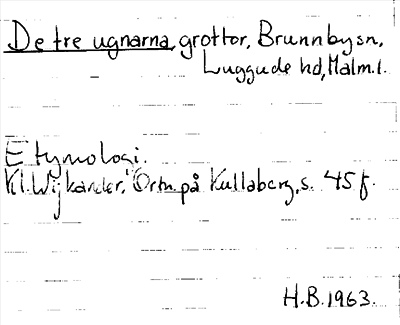 De tre ugnarna, grottor, Brunnby sn,
Luggude hd, Malm. l.
Etymologi.
Kl. Wijkander, "Ortn. på Kullaberg, s. 45 f.
H.B. 1963.